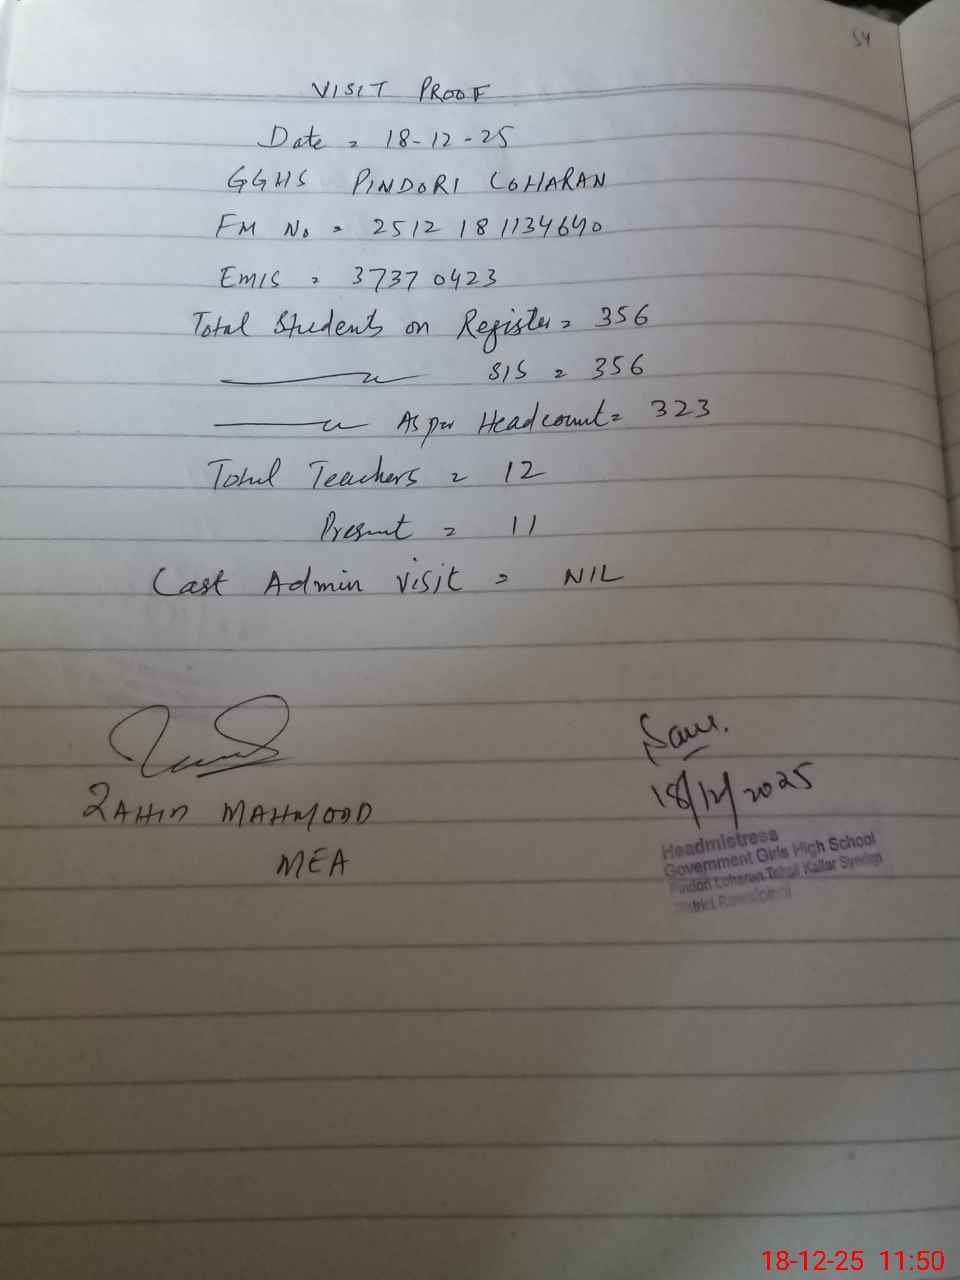 54
VISIT PROOF
Date = 18-12-25
GGHS PINDORI LOHARAN
FM No = 2512 18 1134640
EMIS = 37370423
Total Students on Register = 356
——〃—— SIS = 356
——〃—— As per Headcount = 323
Total Teachers = 12
Present = 11
Last Admin visit = NIL
ZAHID MAHMOOD
MEA
18/12/2025
Headmistress
Government Girls High School
Pindori Loharan Tehsil Kallar Syedan
District Rawalpindi
18-12-25 11:50